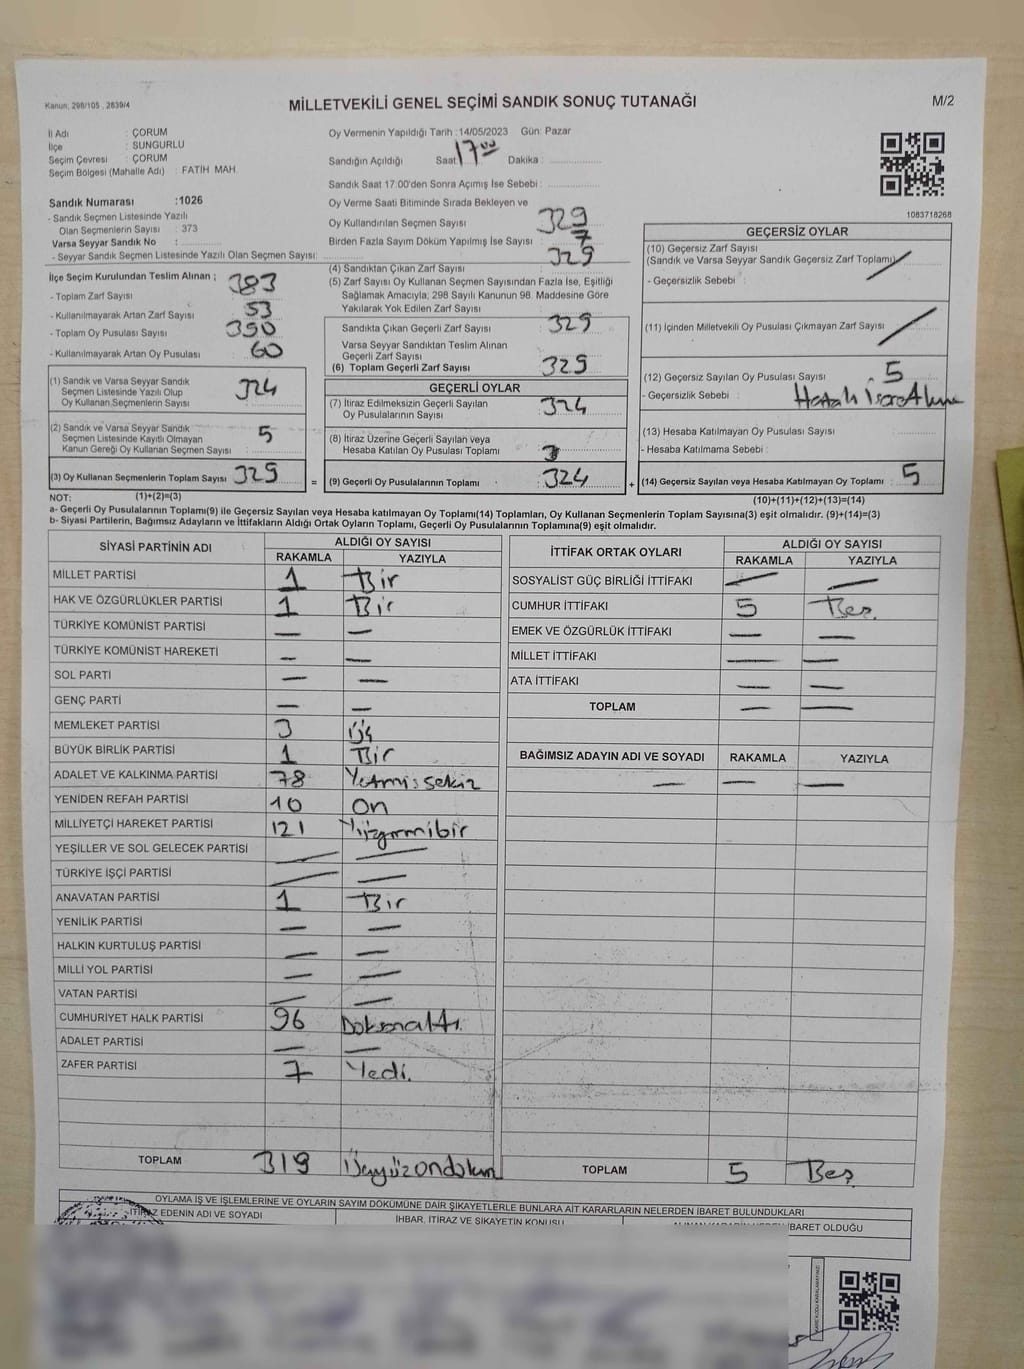 Kanun: 298/105, 2839/4
MİLLETVEKİLİ GENEL SEÇİMİ SANDIK SONUÇ TUTANAĞI
M/2
İl Adı : ÇORUM
İlçe : SUNGURLU
Seçim Çevresi : ÇORUM
Seçim Bölgesi (Mahalle Adı) : FATİH MAH.
Sandık Numarası :1026
- Sandık Seçmen Listesinde Yazılı
Olan Seçmenlerin Sayısı : 373
Varsa Seyyar Sandık No :
- Seyyar Sandık Seçmen Listesinde Yazılı Olan Seçmen Sayısı:
Oy Vermenin Yapıldığı Tarih :14/05/2023 Gün: Pazar
Sandığın Açıldığı Saat 17 00 Dakika :
Sandık Saat 17:00'den Sonra Açımış İse Sebebi :
Oy Verme Saati Bitiminde Sırada Bekleyen ve
Oy Kullandırılan Seçmen Sayısı : 329
Birden Fazla Sayım Döküm Yapılmış İse Sayısı : 7
1083718268
İlçe Seçim Kurulundan Teslim Alınan ;
- Toplam Zarf Sayısı 383
- Kullanılmayarak Artan Zarf Sayısı 53
- Toplam Oy Pusulası Sayısı 390
- Kullanılmayarak Artan Oy Pusulası 60
(1) Sandık ve Varsa Seyyar Sandık
Seçmen Listesinde Yazılı Olup
Oy Kullanan Seçmenlerin Sayısı 324
(2) Sandık ve Varsa Seyyar Sandık
Seçmen Listesinde Kayıtlı Olmayan
Kanun Gereği Oy Kullanan Seçmen Sayısı 5
(3) Oy Kullanan Seçmenlerin Toplam Sayısı 329
(1)+(2)=(3)
(4) Sandıktan Çıkan Zarf Sayısı 329
(5) Zarf Sayısı Oy Kullanan Seçmen Sayısından Fazla İse, Eşitliği
Sağlamak Amacıyla; 298 Sayılı Kanunun 98. Maddesine Göre
Yakılarak Yok Edilen Zarf Sayısı :
Sandıkta Çıkan Geçerli Zarf Sayısı 329
Varsa Seyyar Sandıktan Teslim Alınan
Geçerli Zarf Sayısı
(6) Toplam Geçerli Zarf Sayısı 329
GEÇERLİ OYLAR
(7) İtiraz Edilmeksizin Geçerli Sayılan
Oy Pusulalarının Sayısı 324
(8) İtiraz Üzerine Geçerli Sayılan veya
Hesaba Katılan Oy Pusulası Toplamı
= (9) Geçerli Oy Pusulalarının Toplamı 324
GEÇERSİZ OYLAR
(10) Geçersiz Zarf Sayısı
(Sandık ve Varsa Seyyar Sandık Geçersiz Zarf Toplamı)
- Geçersizlik Sebebi :
(11) İçinden Milletvekili Oy Pusulası Çıkmayan Zarf Sayısı
(12) Geçersiz Sayılan Oy Pusulası Sayısı 5
- Geçersizlik Sebebi : Hatalı
(13) Hesaba Katılmayan Oy Pusulası Sayısı
- Hesaba Katılmama Sebebi :
+ (14) Geçersiz Sayılan veya Hesaba Katılmayan Oy Toplamı 5
(10)+(11)+(12)+(13)=(14)
NOT:
a- Geçerli Oy Pusulalarının Toplamı(9) ile Geçersiz Sayılan veya Hesaba Katılmayan Oy Toplamı(14) Toplamları, Oy Kullanan Seçmenlerin Toplam Sayısına(3) eşit olmalıdır. (9)+(14)=(3)
b- Siyasi Partilerin, Bağımsız Adayların ve İttifakların Aldığı Ortak Oyların Toplamı, Geçerli Oy Pusulalarının Toplamına(9) eşit olmalıdır.
SİYASİ PARTİNİN ADI ALDIĞI OY SAYISI
RAKAMLA YAZIYLA
MİLLET PARTİSİ 1 Bir
HAK VE ÖZGÜRLÜKLER PARTİSİ 1 Bir
TÜRKİYE KOMÜNİST PARTİSİ — —
TÜRKİYE KOMÜNİST HAREKETİ — —
SOL PARTİ — —
GENÇ PARTİ — —
MEMLEKET PARTİSİ 3 Üç
BÜYÜK BİRLİK PARTİSİ 1 Bir
ADALET VE KALKINMA PARTİSİ 78 Yetmişsekiz
YENİDEN REFAH PARTİSİ 10 On
MİLLİYETÇİ HAREKET PARTİSİ 121 Yüzyirmibir
YEŞİLLER VE SOL GELECEK PARTİSİ — —
TÜRKİYE İŞÇİ PARTİSİ — —
ANAVATAN PARTİSİ 1 Bir
YENİLİK PARTİSİ — —
HALKIN KURTULUŞ PARTİSİ — —
MİLLİ YOL PARTİSİ — —
VATAN PARTİSİ — —
CUMHURİYET HALK PARTİSİ 96 Doksanaltı
ADALET PARTİSİ — —
ZAFER PARTİSİ 7 Yedi
TOPLAM 319 Üçyüzondokuz
İTTİFAK ORTAK OYLARI ALDIĞI OY SAYISI
RAKAMLA YAZIYLA
SOSYALİST GÜÇ BİRLİĞİ İTTİFAKI — —
CUMHUR İTTİFAKI 5 Beş
EMEK VE ÖZGÜRLÜK İTTİFAKI — —
MİLLET İTTİFAKI — —
ATA İTTİFAKI — —
TOPLAM — —
BAĞIMSIZ ADAYIN ADI VE SOYADI RAKAMLA YAZIYLA
— — —
TOPLAM 5 Beş
OYLAMA İŞ VE İŞLEMLERİNE VE OYLARIN SAYIM DÖKÜMÜNE DAİR ŞİKAYETLERLE BUNLARA AİT KARARLARIN NELERDEN İBARET BULUNDUKLARI
İTİRAZ EDENİN ADI VE SOYADI
İHBAR, İTİRAZ VE ŞİKAYETİN KONUSU
İBARET OLDUĞU